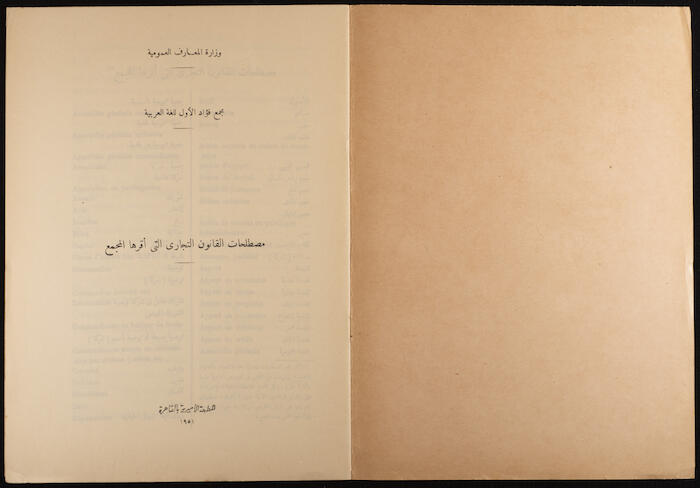 وزارة المعارف العمومية
مجمع فؤاد الأول للغة العربية
مصطلحات القانون التجارى التى أقرها المجمع
المطبعة الأميرية بالقاهرة
١٩٥١